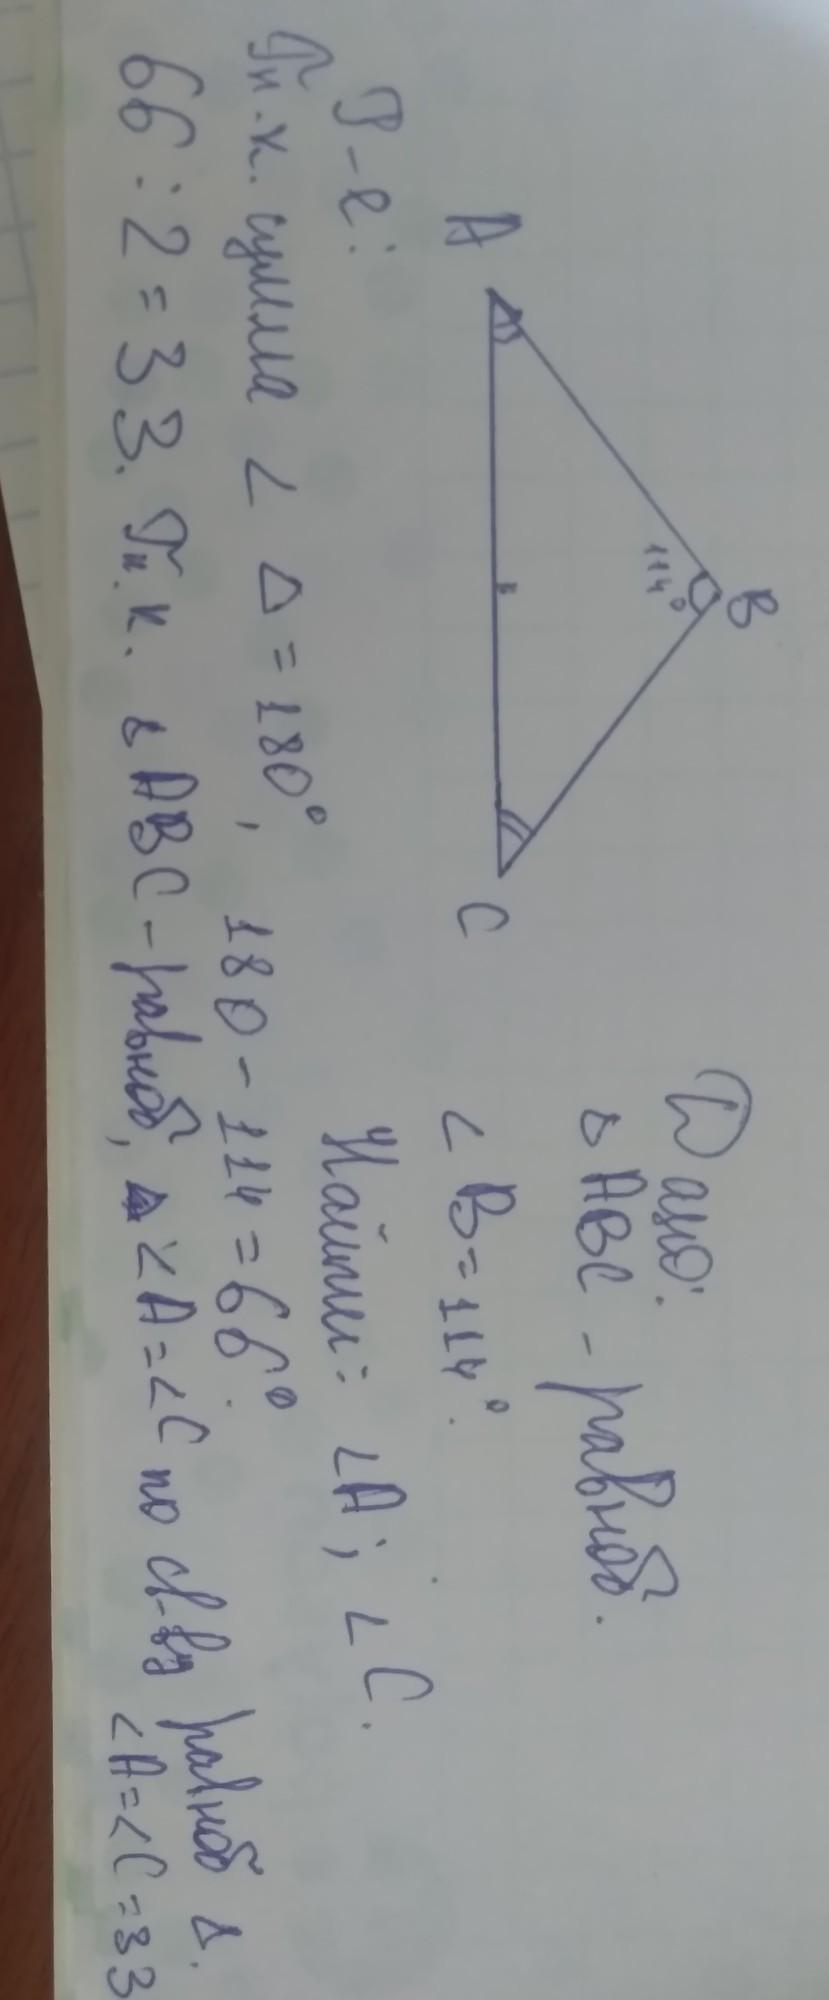 B
114°
A
C
Дано:
△ABC - равноб.
∠B=114°.
Найти: ∠A; ∠C.
Р-е:
Т.к. сумма ∠ △=180°, 180-114=66°.
66:2=33. Т.к. △ABC-равноб, ∠A=∠C по св-ву равноб △.
∠A=∠C=33